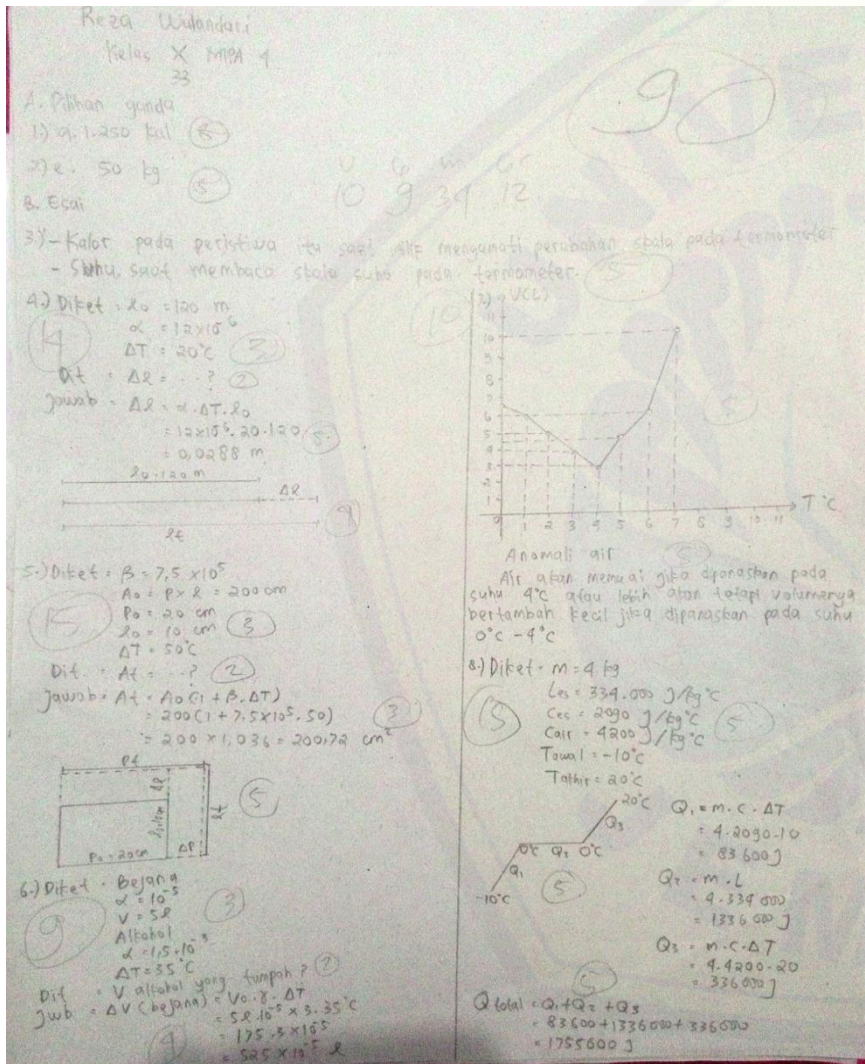 Reza Wulandari
Kelas X MIPA 4
33
90
A. Pilihan ganda
1.) a. 1.250 kal
2.) e. 50 kg 5
10 9 34 12
B. Esai
3.) - Kalor pada peristiwa itu saat mengamati perubahan skala pada termometer
- Suhu, saat membaca skala suhu pada termometer. 5
4.) Diket = l₀ = 120 m
α = 12×10⁻⁶
ΔT = 20°C 3
14
Dit = Δl = ...? 2
Jawab = Δl = α.ΔT.l₀
= 12×10⁻⁶.20.120 5
= 0,0288 m
l₀ = 120 m
Δl
lt
4
5.) Diket = β = 7,5 ×10⁻⁵
A₀ = P × l = 200 cm
P₀ = 20 cm
15
l₀ = 10 cm 3
ΔT = 50°C
Dit. = At = ...? 2
Jawab = At = A₀(1 + β.ΔT)
= 200(1 + 7,5×10⁻⁵.50)
= 200 × 1,036 = 200,72 cm²
Pt
Δl
lt
5
P₀ = 20cm ΔP
6.) Diket = Bejana
α = 10⁻⁵
V = 5l 3
9
Alkohol
α = 1,5.10⁻³
ΔT = 35°C
Dit = V alkohol yang tumpah? 2
Jwb = ΔV (bejana) = V₀.γ.ΔT
= 5l.10⁻⁵ × 3.35°C
= 175.3×10⁻⁵
= 525 × 10⁻⁵ l
4
10
7.) V(l)
11
10
9
8
7
6
5
4
3
2
1
0 1 2 3 4 5 6 7 8 9 10 11 T°C
5
Anomali air 5
Air akan memuai jika dipanaskan pada
suhu 4°C atau lebih akan tetapi volumenya
bertambah kecil jika dipanaskan pada suhu
0°C - 4°C
8.) Diket = m = 4 kg
Les = 334.000 J/kg°C
15
Ces = 2090 J/kg°C 5
Cair = 4200 J/kg°C
Tawal = -10°C
Takhir = 20°C
20°C
Q₃
0°C Q₂ 0°C
Q₁
-10°C
5
Q₁ = m.c.ΔT
= 4.2090.10
= 83600 J
Q₂ = m.L
= 4.334 000
= 1336 000 J
Q₃ = m.c.ΔT
= 4.4200.20
= 336000 J
5
Q total = Q₁+Q₂+Q₃
= 83600+1336000+336000
= 1755600 J